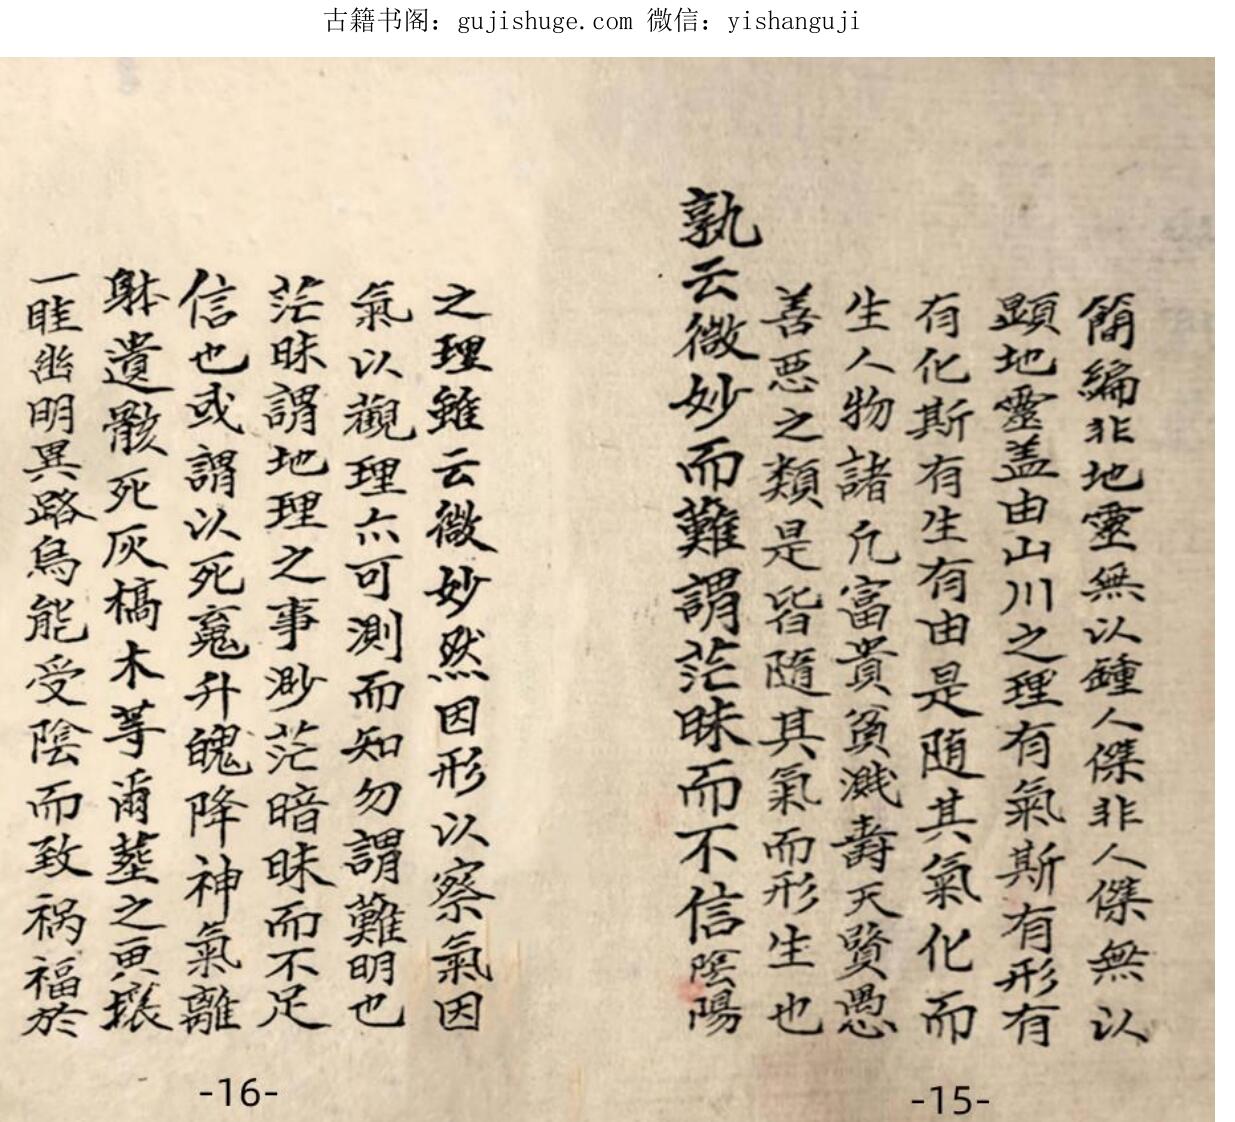 古籍书阁：gujishuge.com 微信：yishanguji
簡編非地靈無以鍾人傑非人傑無以
顕地靈盖由山川之理有氣斯有形有
有化斯有生有由是随其氣化而
生人物諸凢富貴貧濺壽夭賢愚
善悪之類是皆隨其氣而形生也
孰云微妙而難謂茫昧而不信陰陽
之理雖云微妙然因形以察氣因
氣以觀理亦可測而知勿謂難明也
茫昧謂地理之事渺茫暗昧而不足
信也或謂以死䰟升魄降神氣離
躰遺骸死灰槁木等爾塟之黄壤
一眭幽明異路烏能受陰而致祸福於
-16-
-15-